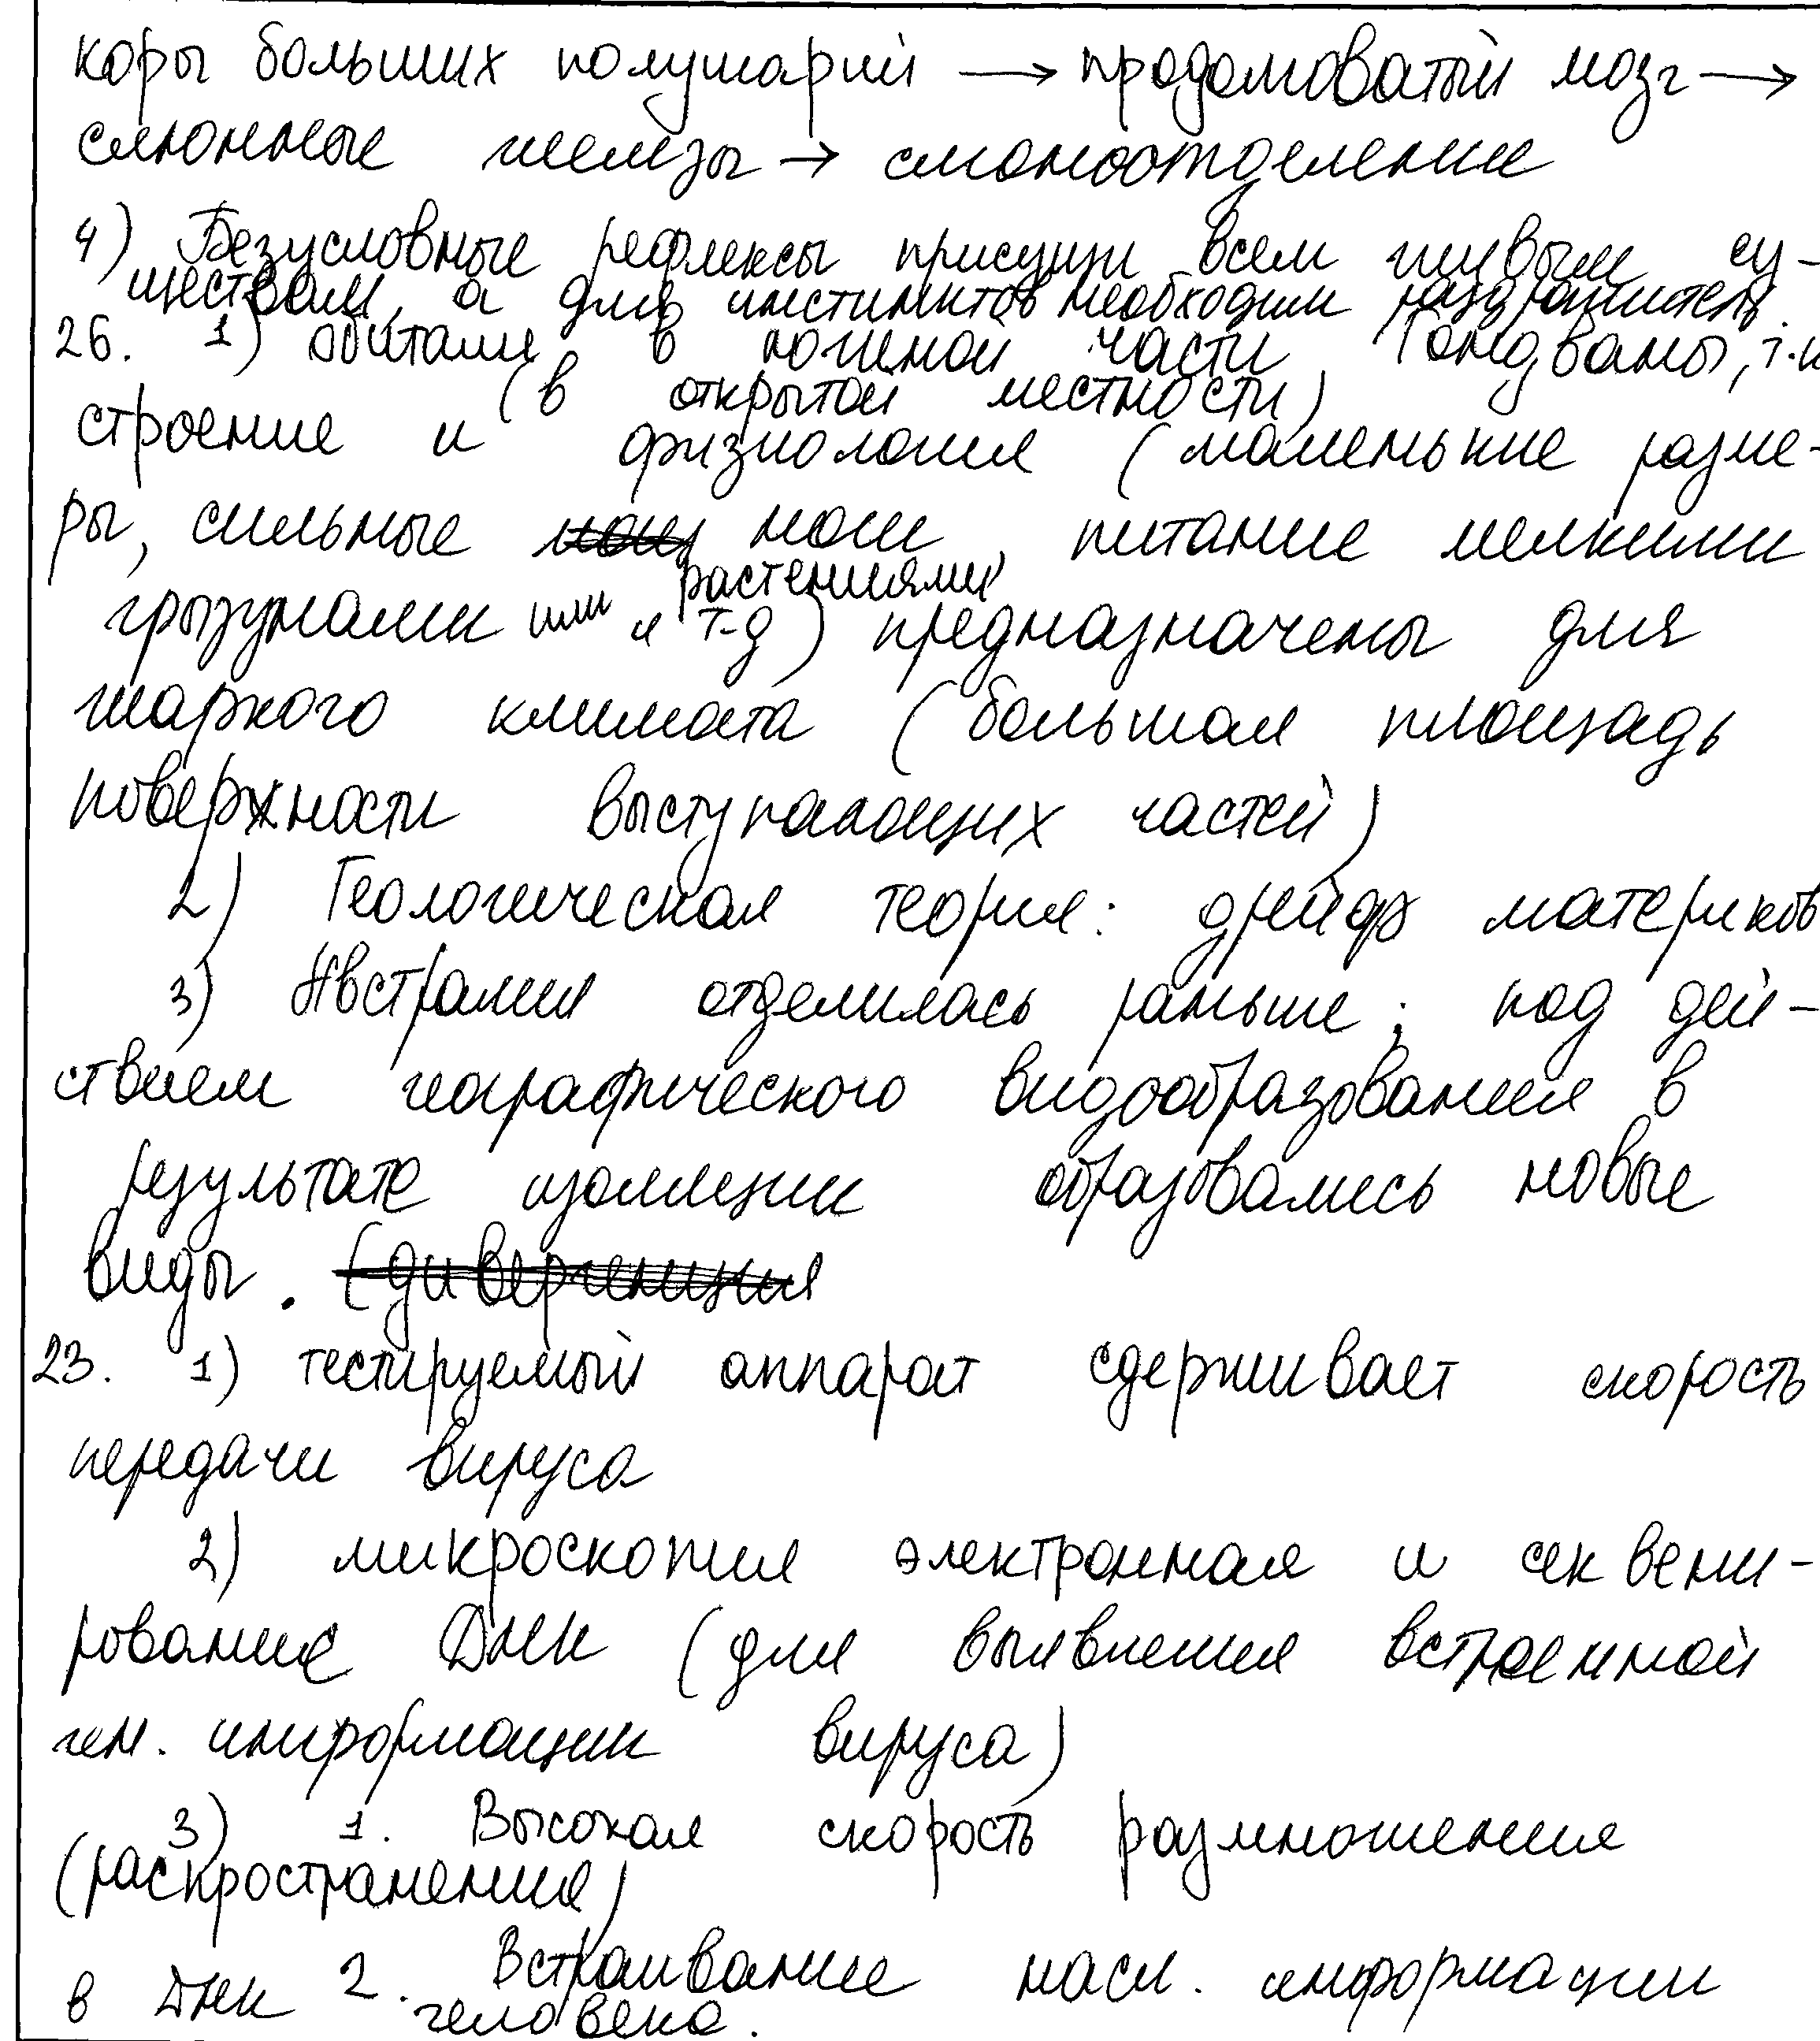 коры больших полушарий → продолговатый мозг →
слюнные железы → слюноотделение
4) Безусловные рефлексы присущи всем живым су-
ществам, а для инстинктов необходим раздражитель.
26. 1) обитали в южной части Гондваны, т.к
(в открытой местности)
строение и физиология (маленькие разме-
ры, сильные ноги, питание мелкими
растениями
грызунами или и т-д) предназначены для
жаркого климата (большая площадь
поверхности выступающих частей)
2) Геологическая теория: дрейф материков
3) Австралия отделилась раньше; под дей-
ствием географического видообразования в
результате изоляции образовались новые
виды. (дивергенция
23. 1) тестируемый аппарат сдерживает скорость
передачи вируса
2) микроскопия электронная и секвени-
рование ДНК (для выявления встроенной
ген. информации вируса)
3) 1. Высокая скорость размножения
(распространения)
2. Встраивание насл. информации
в ДНК человека.